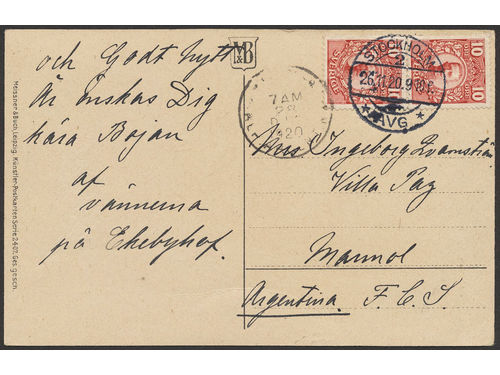 och Godt nytt
År önskas Dig
kära Bojan
af
vännerna
på Ekebyhof.
Meissner & Buch, Leipzig. Künstler-Postkarten Serie 2407. Ges. gesch.
M&B
10 SVERIGE 10
STOCKHOLM
2
26.11.20.9
AVG
7AM
28
20
Ingeborg
Villa Paz
Marmol
Argentina. F. C. S.